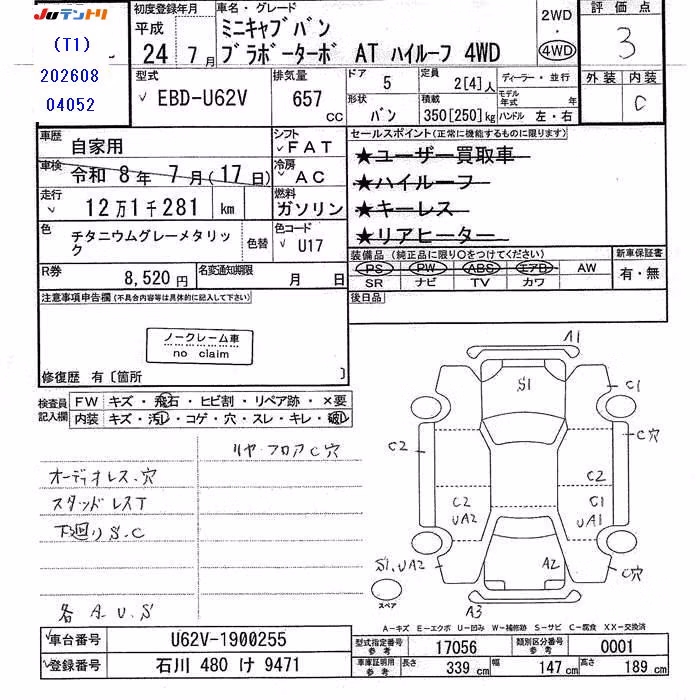 JUテントリ
(T1)
202608
04052
初度登録年月
平成
24年7月
車名・グレード
ミニキャブバン
ブラボーターボ AT ハイルーフ 4WD
2WD
・
4WD
評価点
3
型式
EBD-U62V
排気量
657
CC
ドア
5
定員
2[4]人
ディーラー・並行
形状
バン
積載
350[250]kg
モデル年式 年
ハンドル 左・右
外装 内装
C
車歴
自家用
シフト
FAT
車検
令和 8年 7月(17日)
冷房
AC
走行
12万1千281 km
燃料
ガソリン
色
チタニウムグレーメタリック
色替
色コード
U17
R券
8,520円
名変通知期限
月 日
セールスポイント(正常に機能するものに限ります)
★ユーザー買取車
★ハイルーフ
★キーレス
★リアヒーター
装備品(純正品に限り○をつけてください)
PS PW ABS エアB AW
SR ナビ TV カワ
新車保証書
有・無
後日品
注意事項申告欄(不具合内容等は具体的に記入して下さい)
ノークレーム車
no claim
修復歴 有〔箇所 〕
検査員記入欄
FW キズ・飛石・ヒビ割・リペア跡・×要
内装 キズ・汚レ・コゲ・穴・スレ・キレ・破レ
リヤ フロア C穴
オーディオレス.穴
スタッドレスT
下廻り S.C
各 A.U.S
A1
S1
C1
C2
C穴
C2
C2
UA2
G1
UA1
S1.UA2
A2
C穴
A3
スペア
A-キズ E-エクボ U-凹み W-補修跡 S-サビ C-腐食 XX-交換済
車台番号
U62V-1900255
登録番号
石川 480 け 9471
型式指定番号
参考
17056
類別区分番号
参考
0001
車庫証明用
参考
長さ 339cm 幅 147cm 高さ 189cm